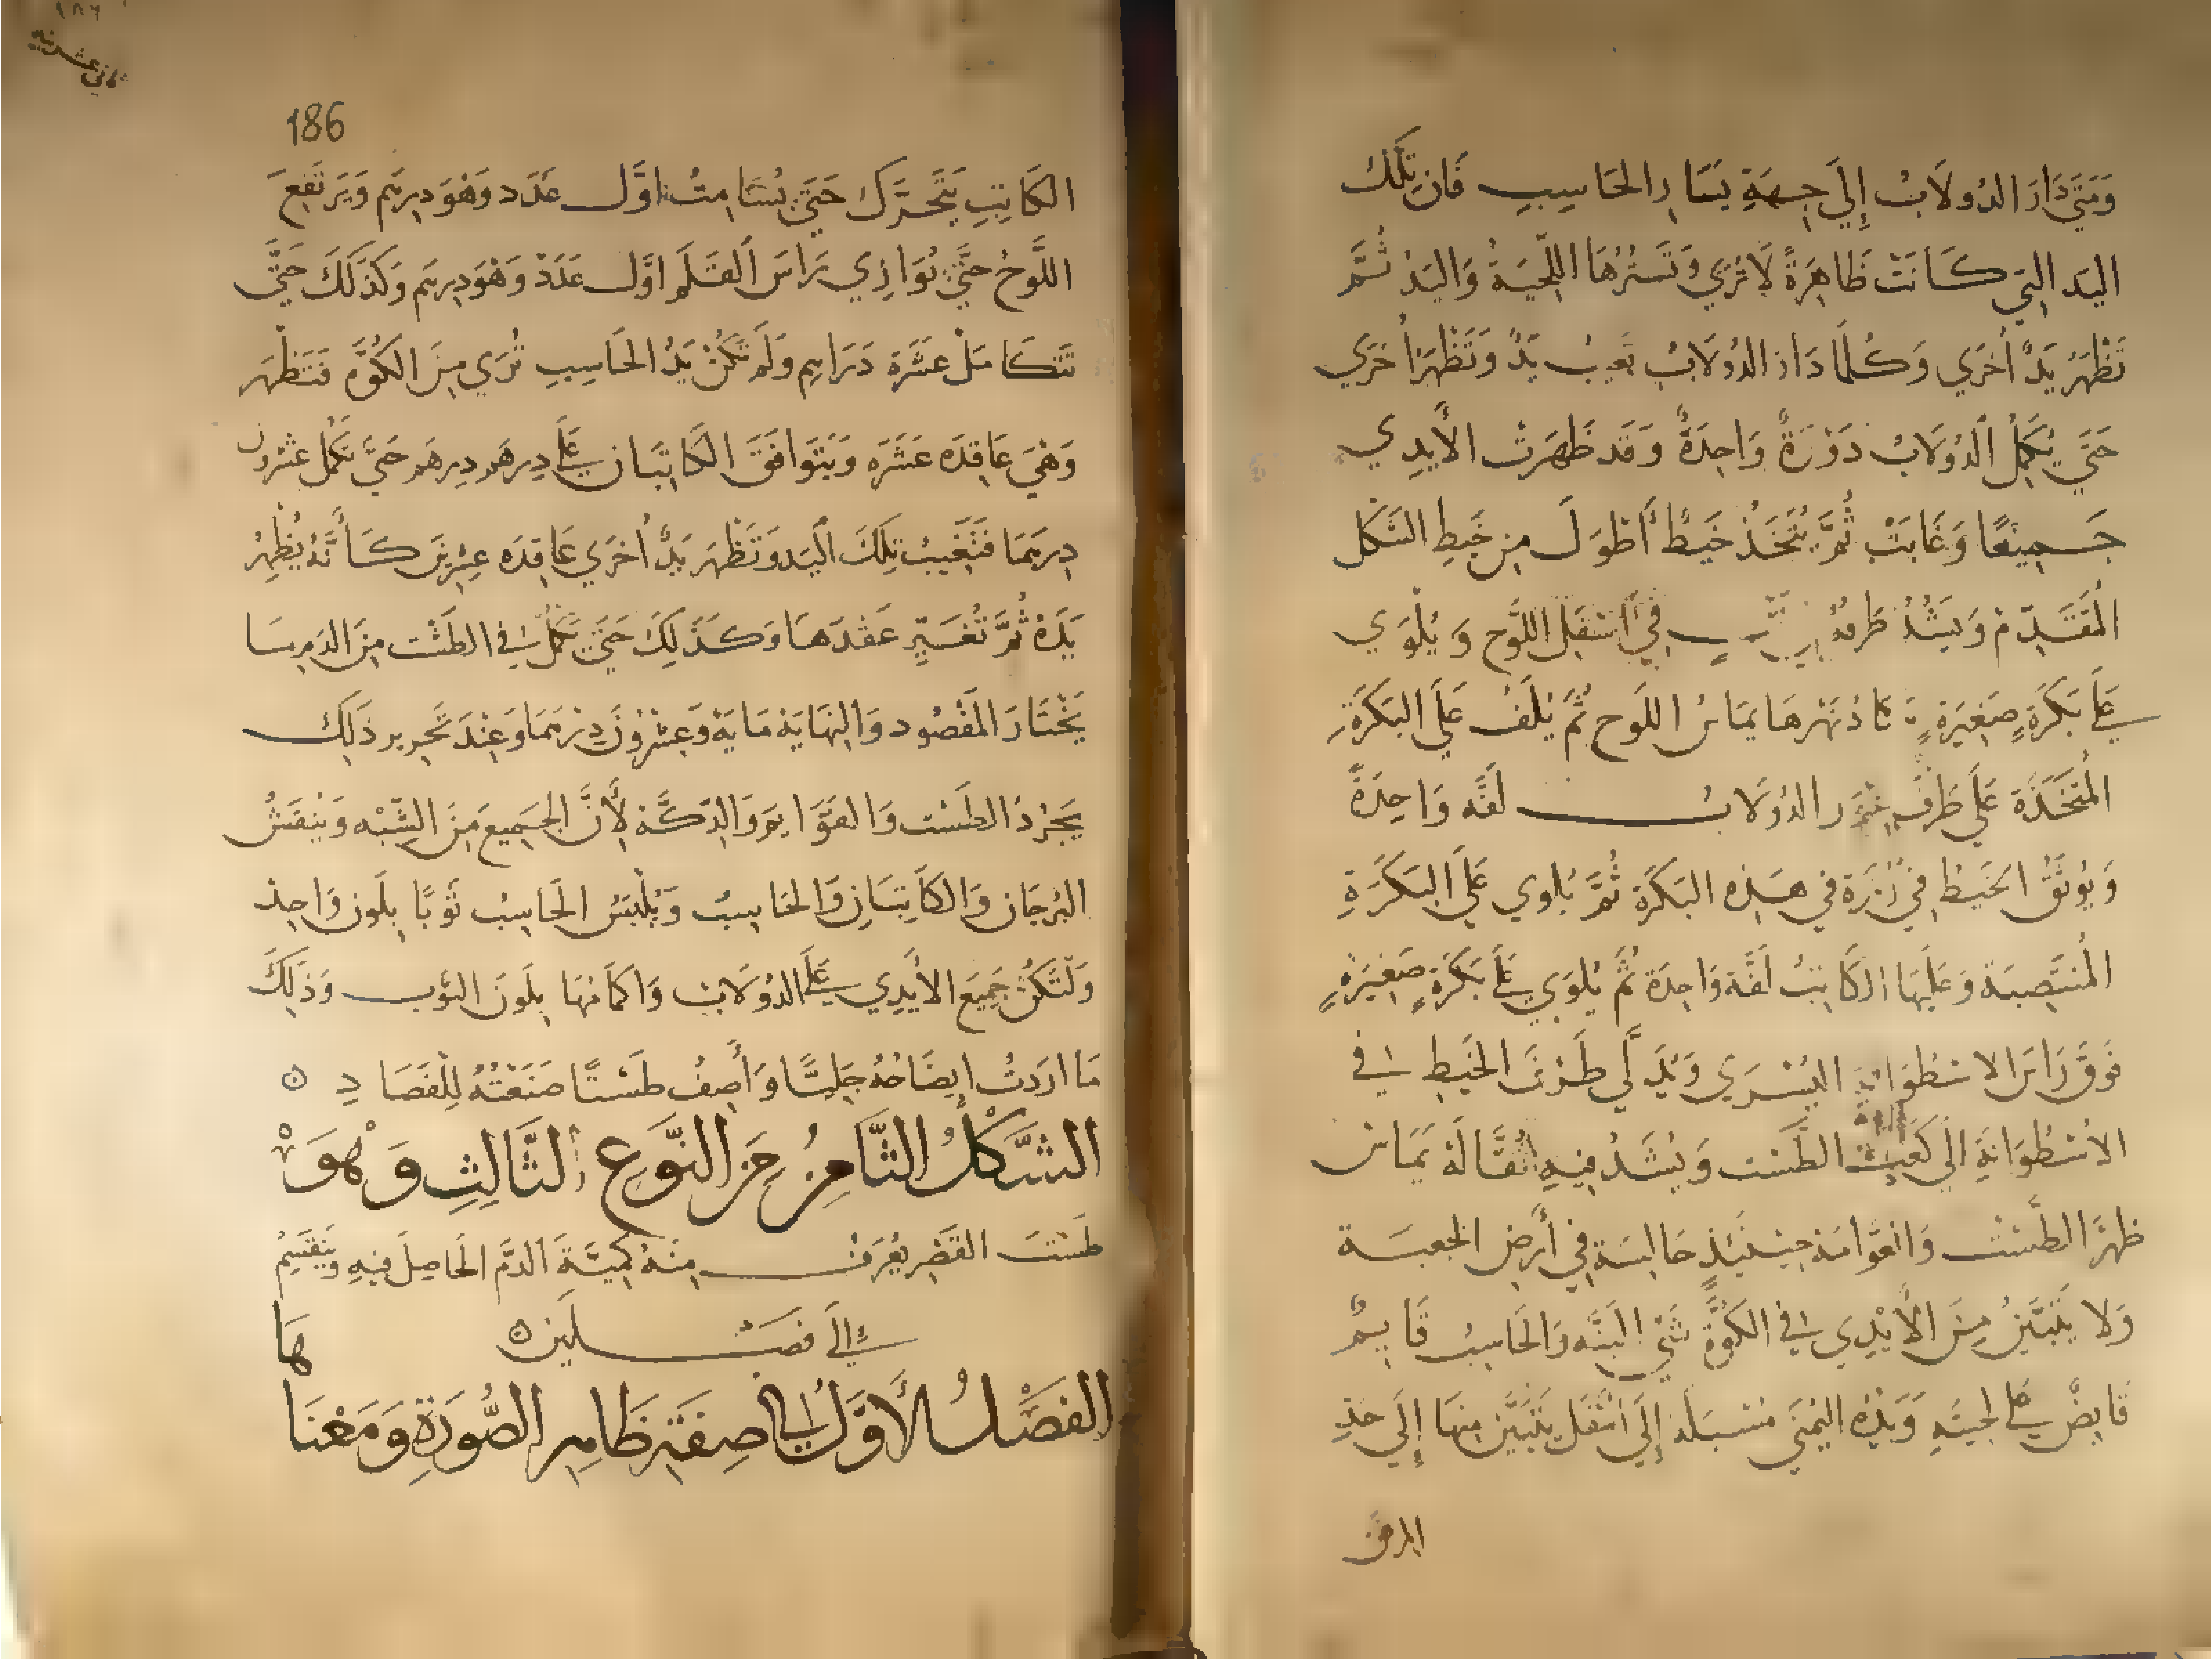 وَمَتَى دَارَ الدُولَابُ إِلَى جِهَةِ يَسَارِ الحَاسِبِ فَان تِلكَ
اليَد التِي كَانَت ظَاهِرَةً لَا تُرَى وَتَسترُهَا اللحِيَةُ وَاليَدُ ثُمَّ
تَظْهَرُ يَدٌ اُخرَي وَكُلمَا دَارَ الدُولَابُ تَغِيبُ يَدٌ وَتَظْهَرُ اُخرَي
حَتَّى يُكمِلُ الدُولَابُ دَوْرَةً وَاحِدَةً وَقَد ظَهَرَت الأَيدِي
جَمِيعًا وَغَابَتْ ثُمَّ يُتَّخَذُ خَيطٌ أَطوَلَ مِن خَيطِ الشَكل
المُتَقَدِّم وَيَشُدُ طَرفُه في أَسفَلِ اللَّوح وَيُلْوَي
عَلَى بَكَرَةٍ صَغِيرَةٍ تكَادُ نَهْرهَا يمَاسُ اللَوح ثُمَّ يُلَفُ عَلَى البَكَرَةِ
المُتَّخَذَة عَلَى طَرَف محور الدُولَاب لَفَّه وَاحِدَةً
وَيُوثَقُ الخَيطُ فِي زرَة في هَذِه البَكَرَة ثُمَّ يُلوي عَلَى البَكَرَةِ
المُنتَصِبَة وَعَلَيهَا الكَاتِبُ لَفَّة وَاحِدَة ثُمَّ يُلوَي عَلَى بَكَرَةٍ صَغِيرَةٍ
فَوقَ رَاسَ الاسطُوَانَةِ اليُسرَي وَيُدَلَّي طَرَفَ الخَيطِ في
الاسطُوَانَةِ إلَى كَعبِ الطَّست وَيُشَدُ فِيهِ ثَقَّالَة يمَاسُ
ظهرَ الطَّست وَالعَوَّامَة حِينَئِذٍ جَالسَة فِي أَرضِ الجعبَة
وَلَا يَتَبَيَّنُ مِنَ الأَيْدِي في الكَوَّةِ شَيْ البَتَّه وَالحَاسِبُ قَايمٌ
قَابِضٌ عَلَى لحيَتِهِ وَيَدُه اليُمنَى مُسبَلَة إِلَى اسفَل يَتَبَيَّن مِنهَا إِلَى حَدِ
المرفق
186
الكَاتِبِ يَتَحَرَّك حَتَّى يُسَامِتُ اوَّل عَدَد وَهوَ دِرهَم وَيَرتَفِعَ
اللَّوحُ حَتَّى يُوَازِي رَاسَ القَلَم اوَّل عَدَد وَهوَ دِرهَم وَكَذَلَكَ حَتَّى
تَتكَامَل عَشَرَة دَرَاهِم وَلَم تَكُنْ يَدُ الحَاسِبِ تُرَي مِنَ الكُوَّةِ فَتَظْهَر
وَهيَ عَاقِدَه عَشَرَه وَيَتَوَافَقَ الكَاتِبَان عَلَى دِرهَم دِرهَم حَتَّى تَكمُل عشرون
دِرهَمَا فَتَغِيبُ تِلكَ اليَد وَتَظهَر يَدٌ اُخرَي عَاقِدَه عِشرِينَ كَأَنَّهُ يُظْهِرُ
يَدَهُ ثُمَّ تُغَيِّرِ عَقدَهَا وَكَذَلِكَ حَتَّى تَكمُل في الطَست مِنَ الدَم مَا
يَخْتَارَ المَفصُود وَالنِهَايَة مَايَة وَعِشرُونَ دِرهَمَا وَعِندَ تَحرِير ذَلِك
يَجرُدُ الطَست وَالعَوَّايم وَالدَكَّة لأَنَّ الجَمِيعَ مِنَ الشَّبه وَيُنقَشُ
البُرجَان وَالكَاتِبَان وَالحَاسِبُ وَيُلبَسُ الحَاسِبُ ثَوبًا بِلَون وَاحِد
وَلتَكُن جَمِيع الأَيدِي عَلَى الدُولَاب وَاكمَامُهَا بِلَونَ الثَوب وَذَلِكَ
مَا ارَدتُ إيضَاحُهُ جَلِيًّا وَأَصِفُ طَستًا صَنَعْتُهُ لِلْفَصَادِ
الشَّكلُ الثَّامِنُ مِنَ النَّوعِ الثَّالِثِ وَهوَ
طَستَ الفَصدِ يُعرَفُ مِنهُ كَمِيَّةَ الدَّم الحَاصِلَ فِيهِ وَيَنقَسِمُ
إلَى فصَلَين
الفَصْلُ الأَوَّلُ في صِفَةِ ظَاهِرِ الصُّورَةِ وَمَعْنَا
هَا